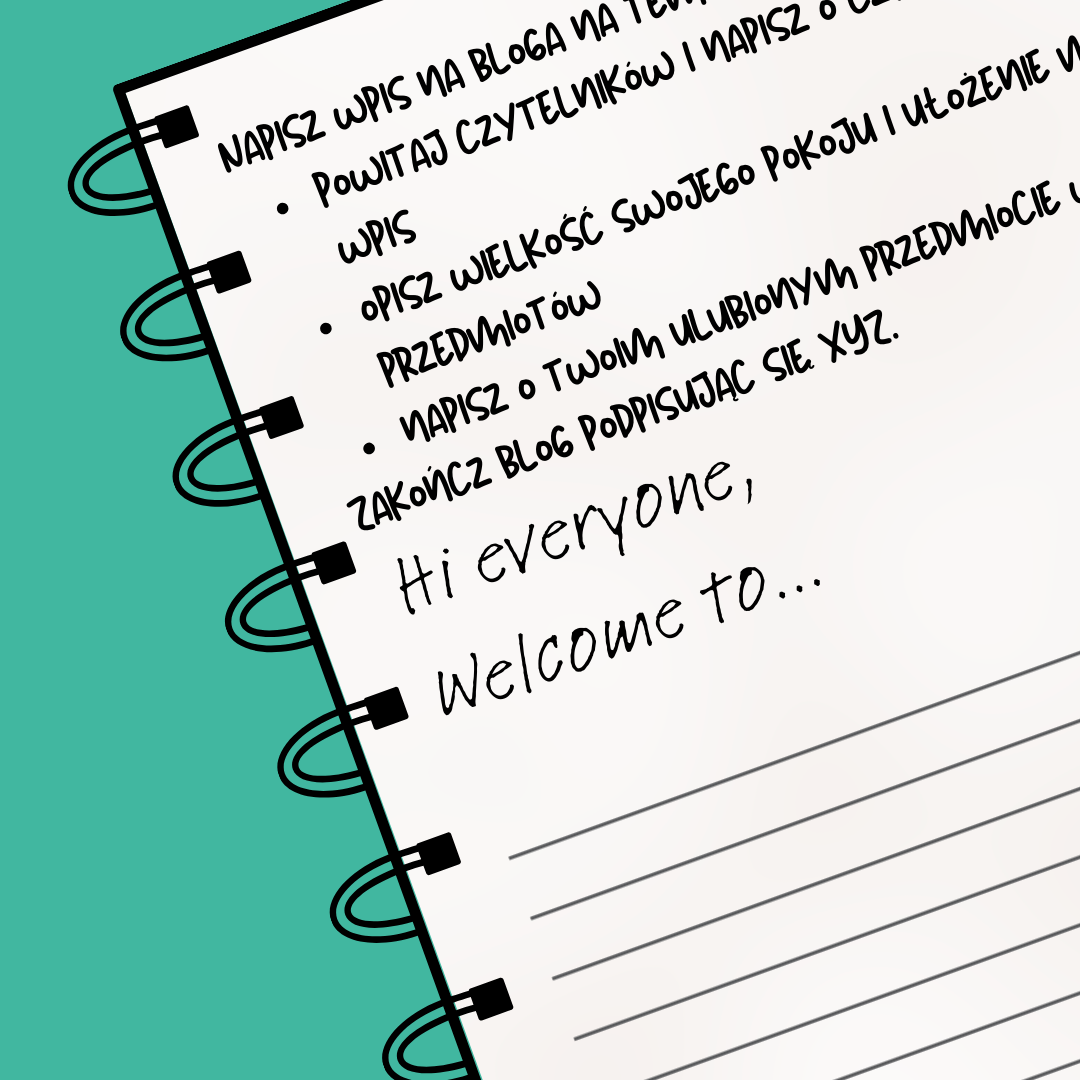 NAPISZ WPIS NA BLOGA NA
POWITAJ CZYTELNIKÓW I NAPISZ O
WPIS
OPISZ WIELKOŚĆ SWOJEGO POKOJU I UŁOŻENIE
PRZEDMIOTÓW
NAPISZ O TWOIM ULUBIONYM PRZEDMIOCIE
ZAKOŃCZ BLOG PODPISUJĄC SIĘ XYZ.
Hi everyone,
Welcome to...